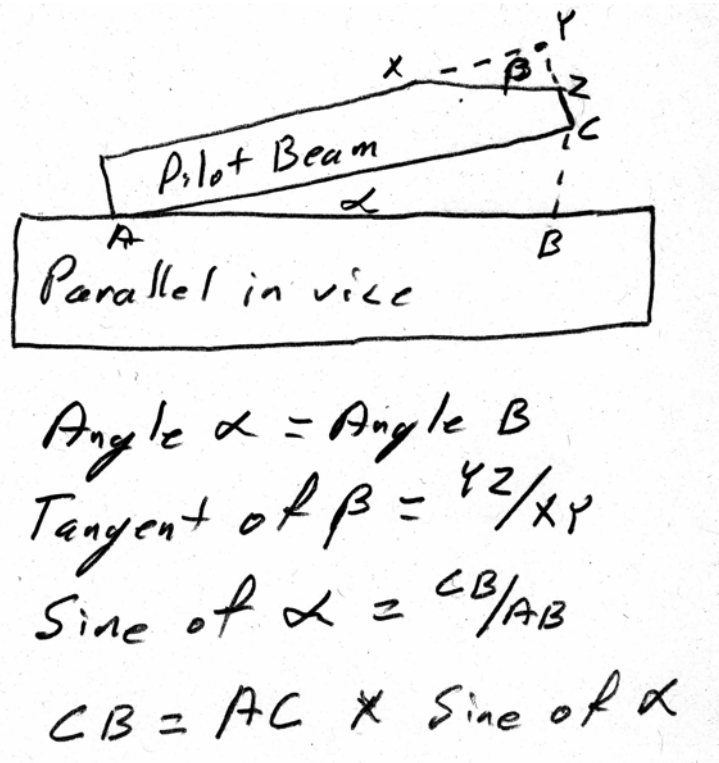 Y
X
β
Z
C
Pilot Beam
α
A
B
Parallel in vice
Angle α = Angle B
Tangent of β = YZ/XY
Sine of α = CB/AB
CB = AC X Sine of α